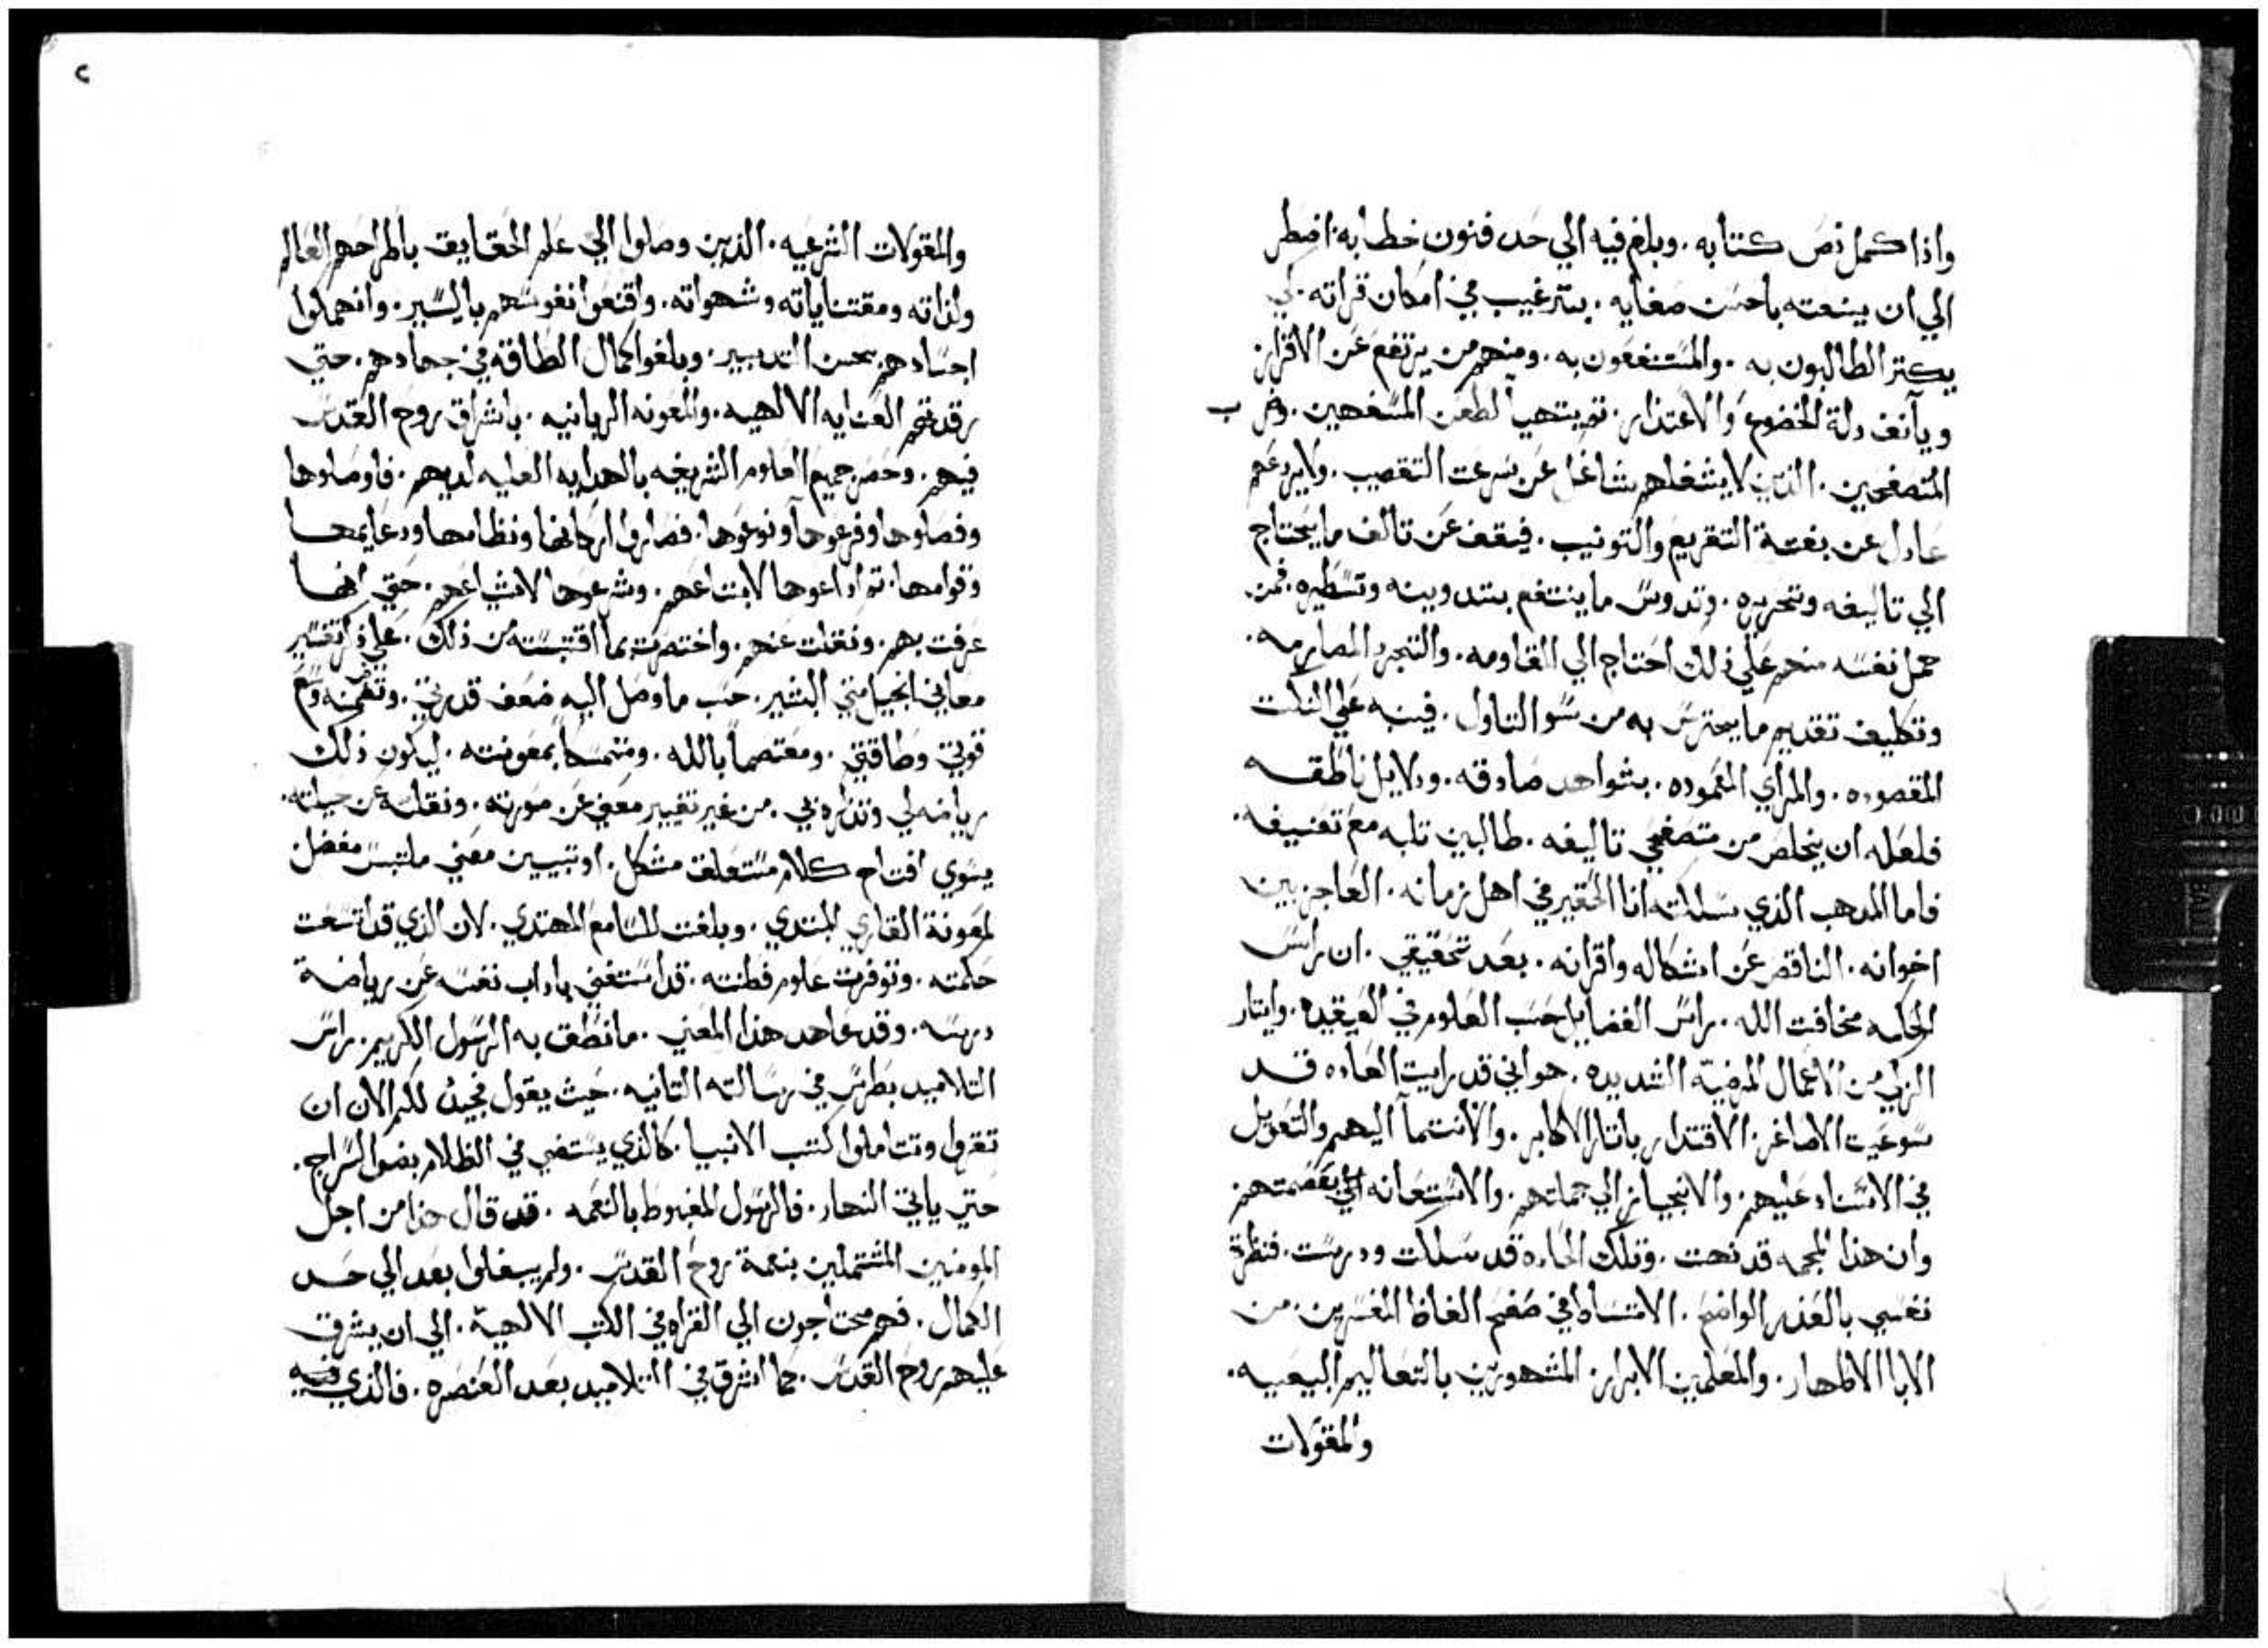 واذا كمل نص كتابه . وبلغ فيه الي حد فنون خطابه . اضطر
الي ان ينعته باحسن صفاته . بترغيب في امكان قراته . لكي
يكتر الطالبون به . والمستنفعون به . ومنهم من يرتفع عن الاقرار
ويآنف دلة الخضوع والاعتذار . تم يتهيا لطعن المسفهين .
المتصفحين . الذين لا يشغلهم شاغل عن سرعت التقصيب . ولا يردعهم
عادل عن بغتة التقريع والتونيب . فيقف عن تالف ما يحتاج
الي تاليفه وتحريره . وتدوس ما ينتفع بتدوينه وتسطيره . فمن
حمل نفسه منهم علي ذلك احتاج الي المقاومه . والتجرد المصارمه .
وتكليف تقديم ما يحترس به من سو التاول . فينبه علي النكت
المقصوده . والمراي المقموده . بشواهد صادقه . ودلايل ناطقه
فلعله ان يخلص من متصفحي تاليفه . طالبين تلبه مع تعنيفه .
فاما المدهب الذي سلكته انا الحقير في اهل زمانه . العاجز بين
اخوانه . الناقص عن اشكاله واقرانه . بعد تحقيقي . ان راس
الحكمه مخافت الله . راس الفضايل حسب العلوم في العقيده . وايتار
الزلفي من الاعمال المرضية الشديده . هو اني قد رايت العاده قد
سوعت الاصاغر . الاقتدار باتار الاكابر . والانتمآ اليهم والتعويل
في الاسناد عليهم . والانحياز الي جملتهم . والاستعانه الي بعصمتهم
وان هذا المحجه قد نهجت . وتلك الجاده قد سلكت ودرست . فنظرة
نفسي بالعذر الواضح . الانتساط في صفح الفاظ المفسرين . من
الابا الاطهار . والمعلمين الابرار . المشهورين بالتعاليم البيعيه .
والمقولات
والمقولات الشرعيه . الذين وصلوا الي علم الحقايق باطراحهم العالم
ولذاته ومقتناياته وشهواته . واقنعوا نفوسهم باليسير . وانهكوا
اجسادهم بحسن التدبير . وبلغوا كمال الطاقة في جهادهم . حتي
رفدتهم العنايه الالهيه . والمعونه الربانيه . باشراق روح القدس
فيهم . وحصر جميع العلوم الشريفه بالهدايه العليه لديهم . فاوصلوها
وفصلوها وفرعوها ونوعوها . فصاروا اركانها ونظامها ودعايمها
وقوامها . تم اداعوها لاتباعهم . وشرعوها لاشياعهم . حتي انها
عرفت بهم . ونقلت عنهم . واختصرت بما اقتبسته من ذلك . علي ذكر تفسير
معاني انجيل متي البشير . حسب ما وصل اليه ضعف قدرتي . وتضمنه وسع
قوتي وطاقتي . ومعتصماً بالله . ومتمسكاً بمعونته . ليكون ذلك
رياضه لي وتذكره بي . من غير تغيير معني عن صورته . ونقله عن جبلته .
يسوي افتتاح كلام مستغلق مشكل . او تبيين معني ملتبس مفضل
لمعونة القاري المبتدي . وبلغت للسامع المهتدي . لان الذي قد اتسعت
حكمته . وتوفرت علوم فطنته . قد استغني باداب نفسه عن رياضة
درسه . وقد عاهد هذا المعني . ما نطق به الرسول الكريم . راس
التلاميد بطرس في رسالته التانيه . حيث يقول فجيدٌ لكم الان ان
تقروا وتتاملوا كتب الانبيا . كالذي يستضي في الظلام بضو السراج .
حتي ياتي النهار . فالرسول المغبوط بالنعمه . قد قال هذا من اجل
المومنين المشتملين بنعمة روح القدس . ولم يبغلوا بعد الي حد
الكمال . فهم محتاجون الي القراه في الكتب الالهية . الي ان يشرق
عليهم روح القدس . كما اشرق في التلاميد بعد العنصره . فالذي فيه
٢